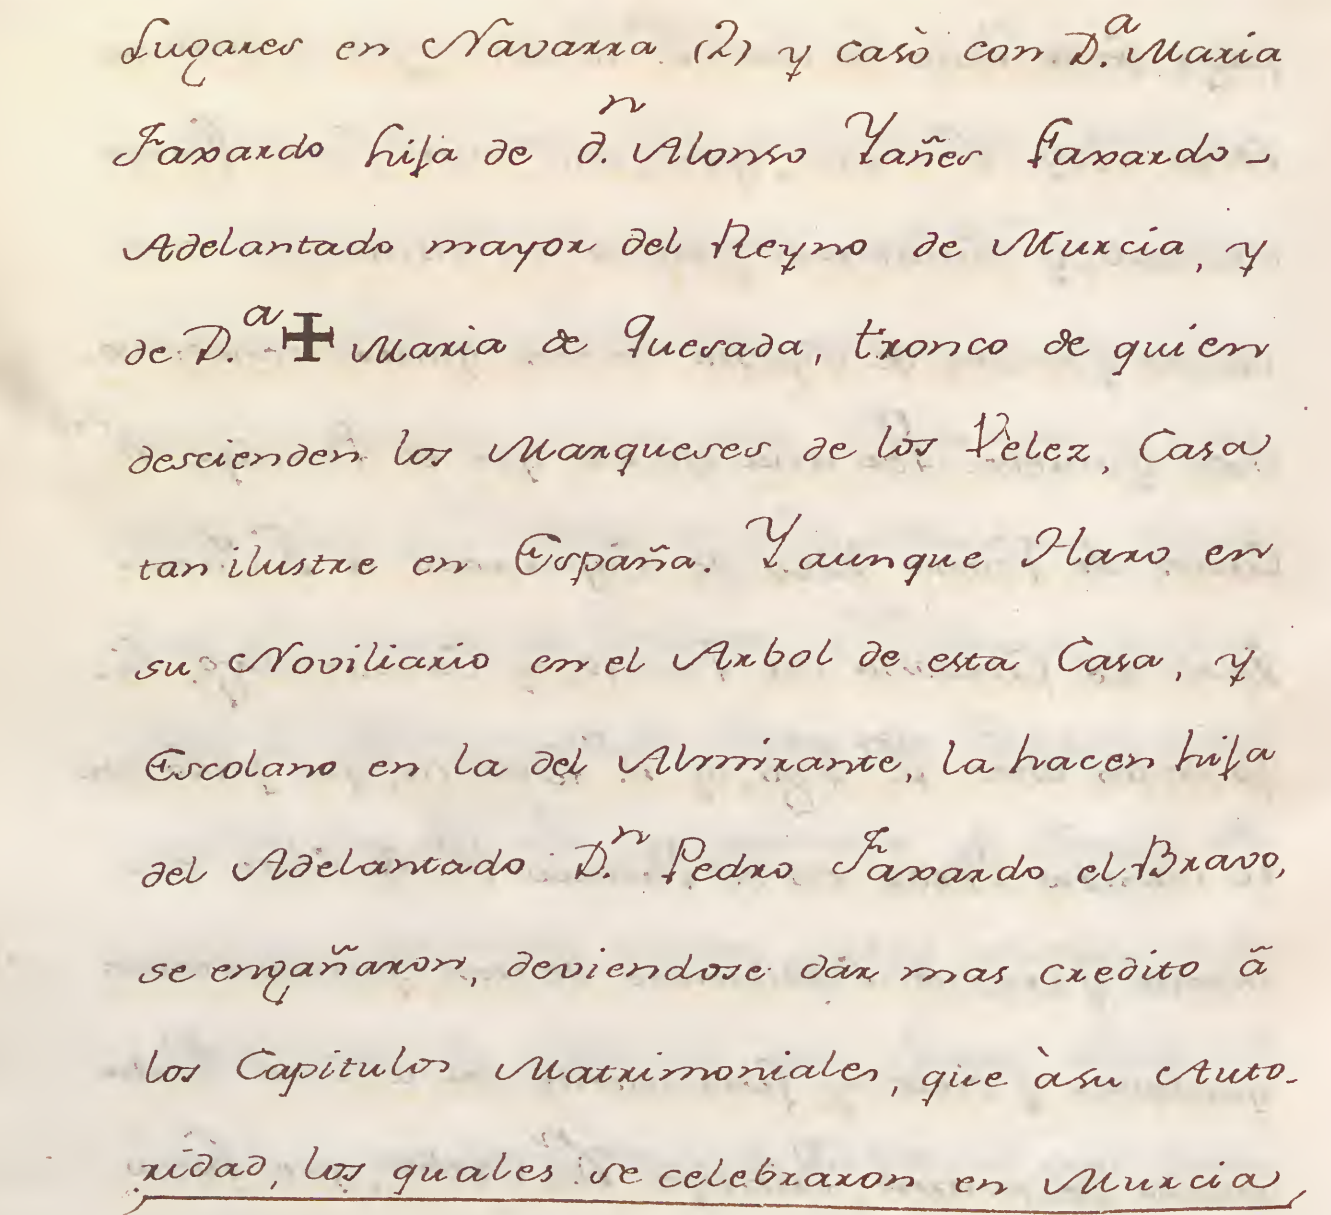 Lugares en Navarra (2) y casò con D.ª Maria
Faxardo hija de d.ⁿ Alonso Yañes Faxardo-
Adelantado mayor del Reyno de Murcia, y
de D.ª ✠ Maria de Quesada, tronco de quien
descienden los Marqueses de los Velez, Casa
tan ilustre en España. Y aunque Haro en
su Noviliario en el Arbol de esta Casa, y
Escolano en la del Almirante, la hacen hija
del Adelantado D.ⁿ Pedro Faxardo el Bravo,
se engañaron, deviendose dàr mas credito ã
los Capitulos Matrimoniales, que àsu Auto-
ridad, los quales se celebraron en Murcia,